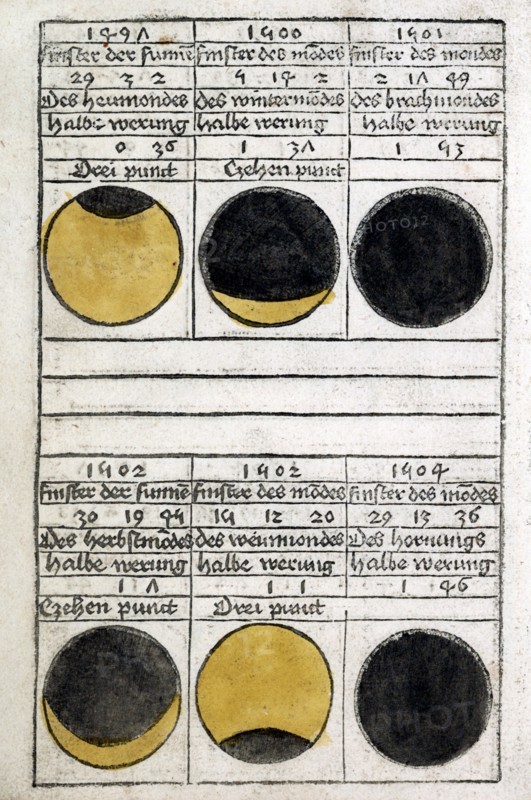 1497 1500 1501
Finster der sunnē finster des mōdes finster des mondes
29 3 2 5 14 2 2 17 49
Des heumondes des wintermōdes des brachmondes
halbe werung halbe werung halbe werung
0 36 1 37 1 53
Drei punct Czehen punct
1502 1502 1504
finster der sunnē finster des mōdes finster des mōdes
30 19 45 15 12 20 29 13 36
Des herbstmōdes des weinmondes Des hornungs
halbe werung halbe werung halbe werung
1 7 1 1 1 46
Czehen punct Drei punct